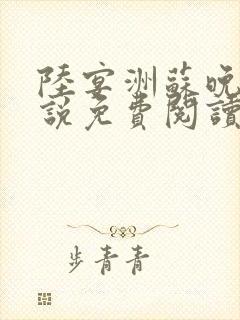 陸宴洲蘇晚
說免費閱讀
步青青